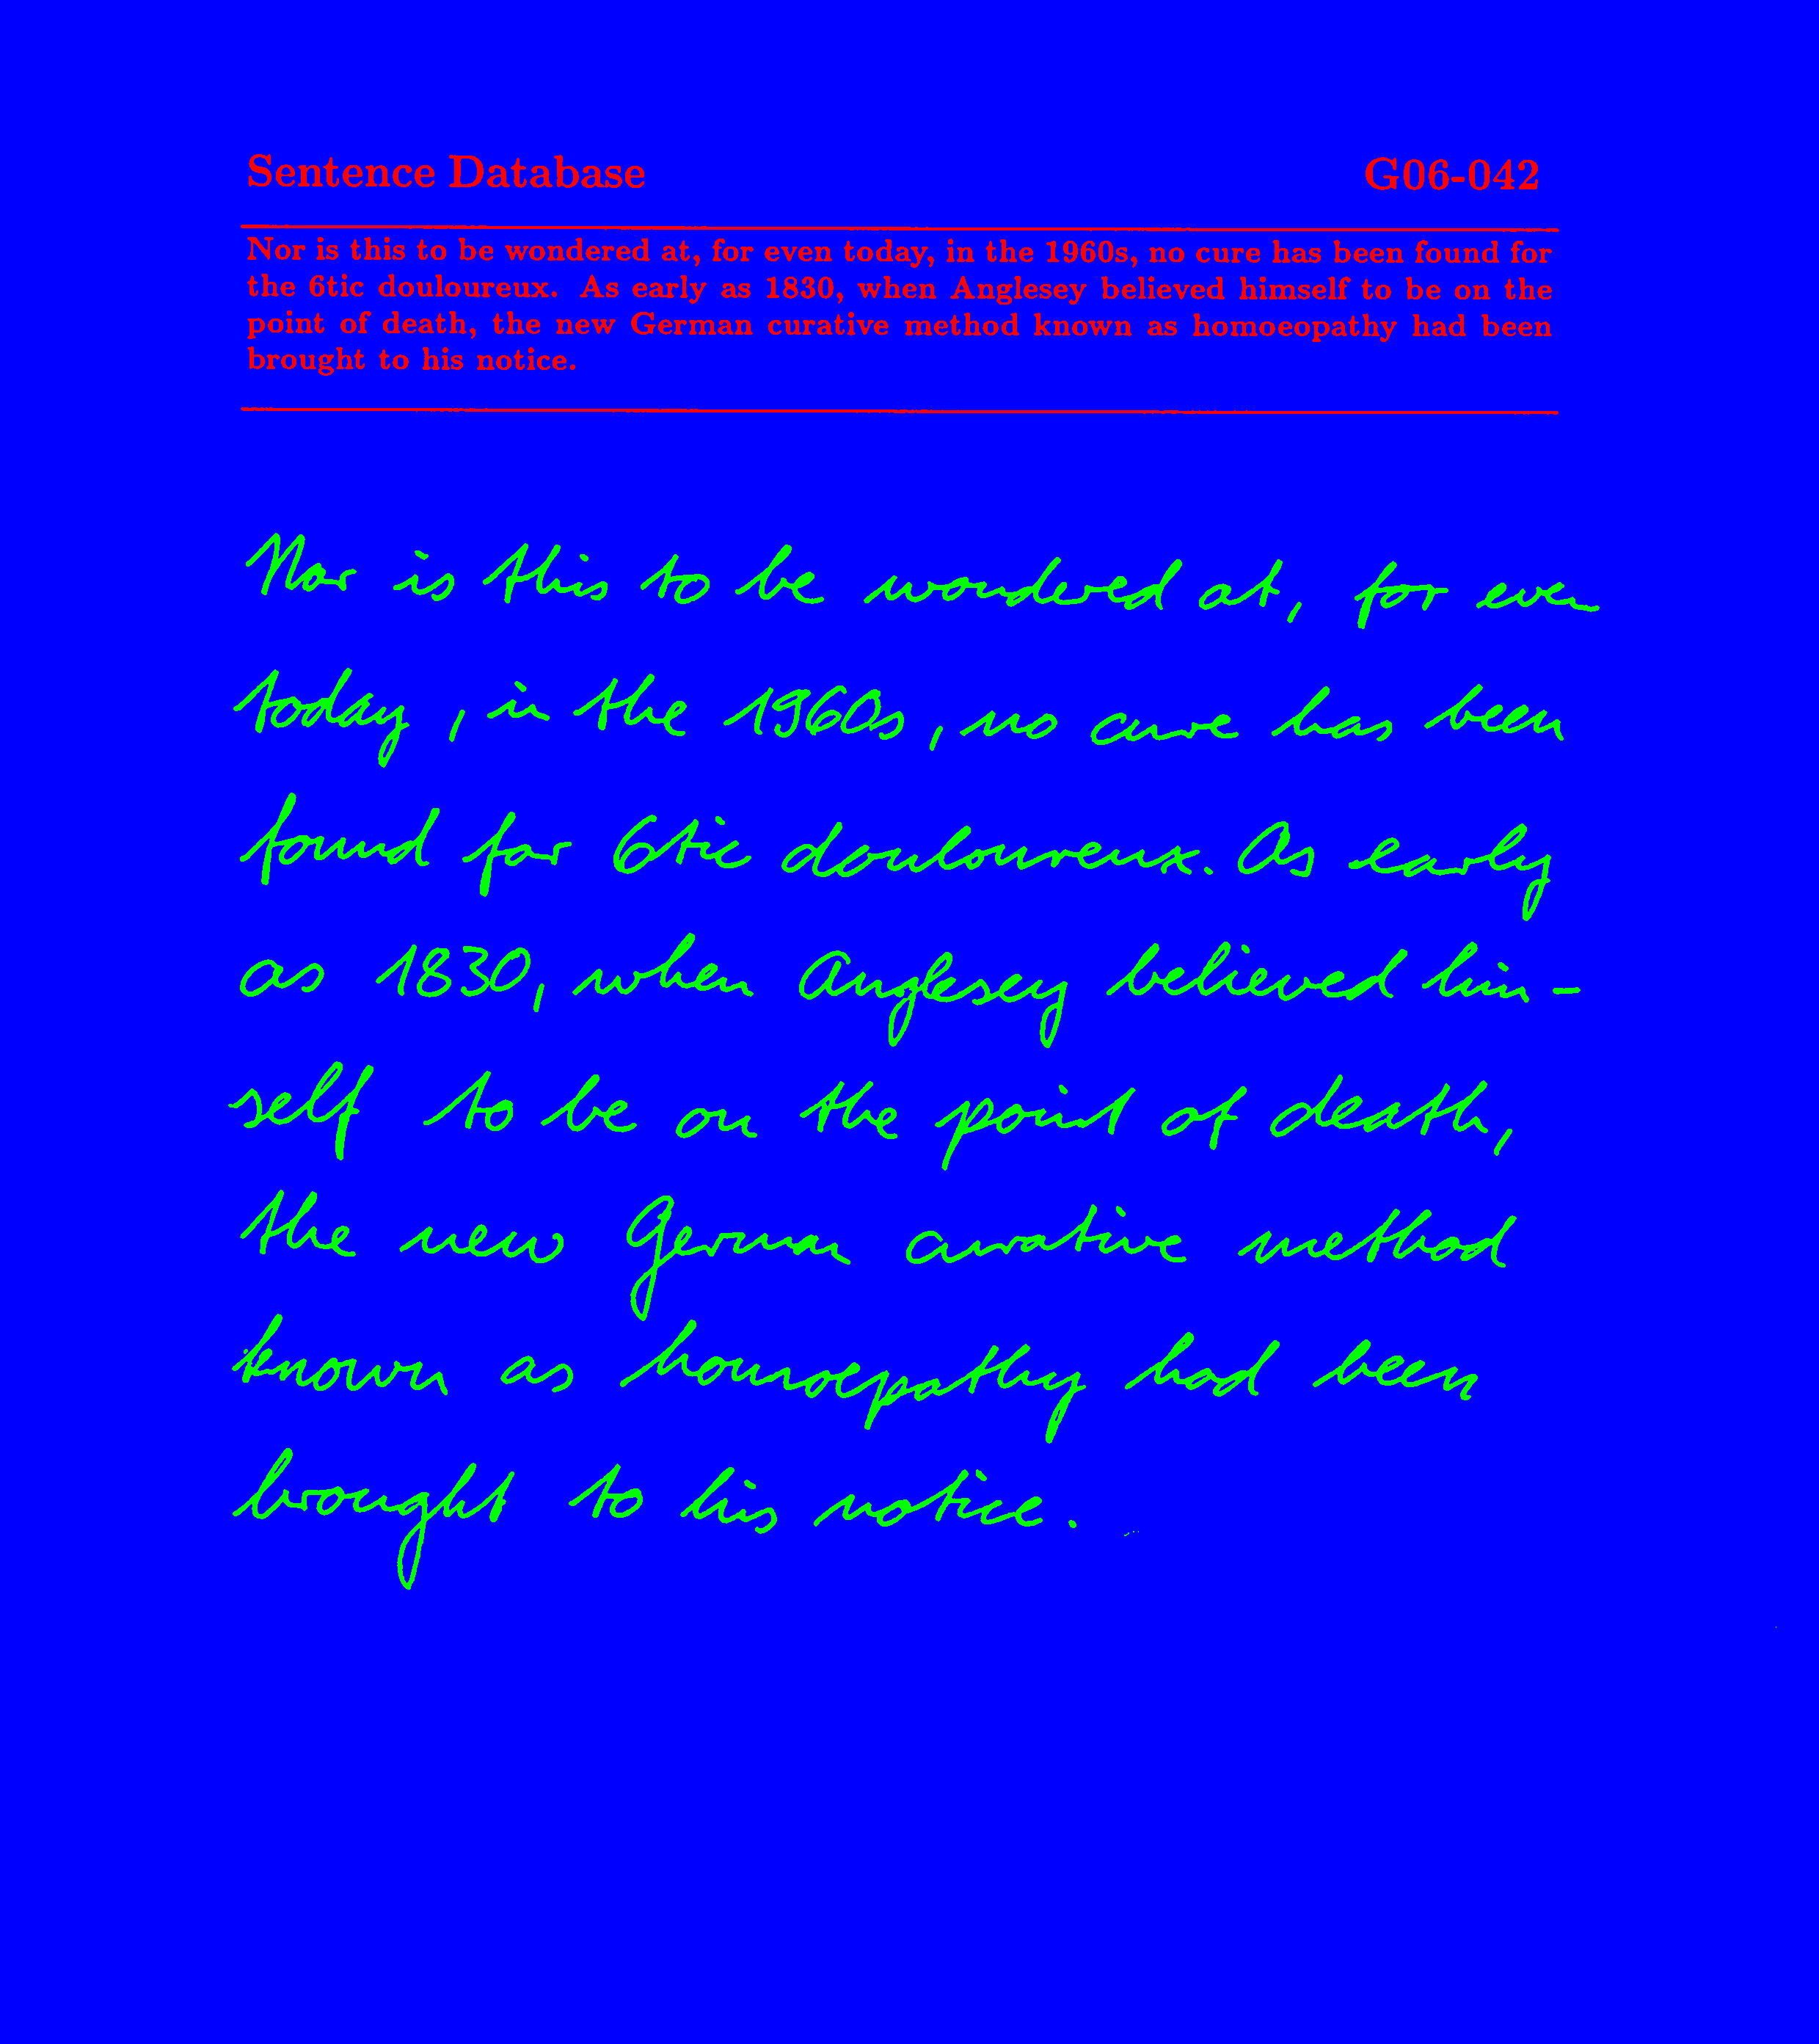 Sentence Database G06-042
Nor is this to be wondered at, for even today, in the 1960s, no cure has been found for
the 6tic douloureux. As early as 1830, when Anglesey believed himself to be on the
point of death, the new German curative method known as homoeopathy had been
brought to his notice.
Nor is this to be wondered at, for even
today, in the 1960s, no cure has been
found for 6tic douloureux. As early
as 1830, when Anglesey believed him-
self to be on the point of death,
the new German curative method
known as homoepathy had been
brought to his notice.